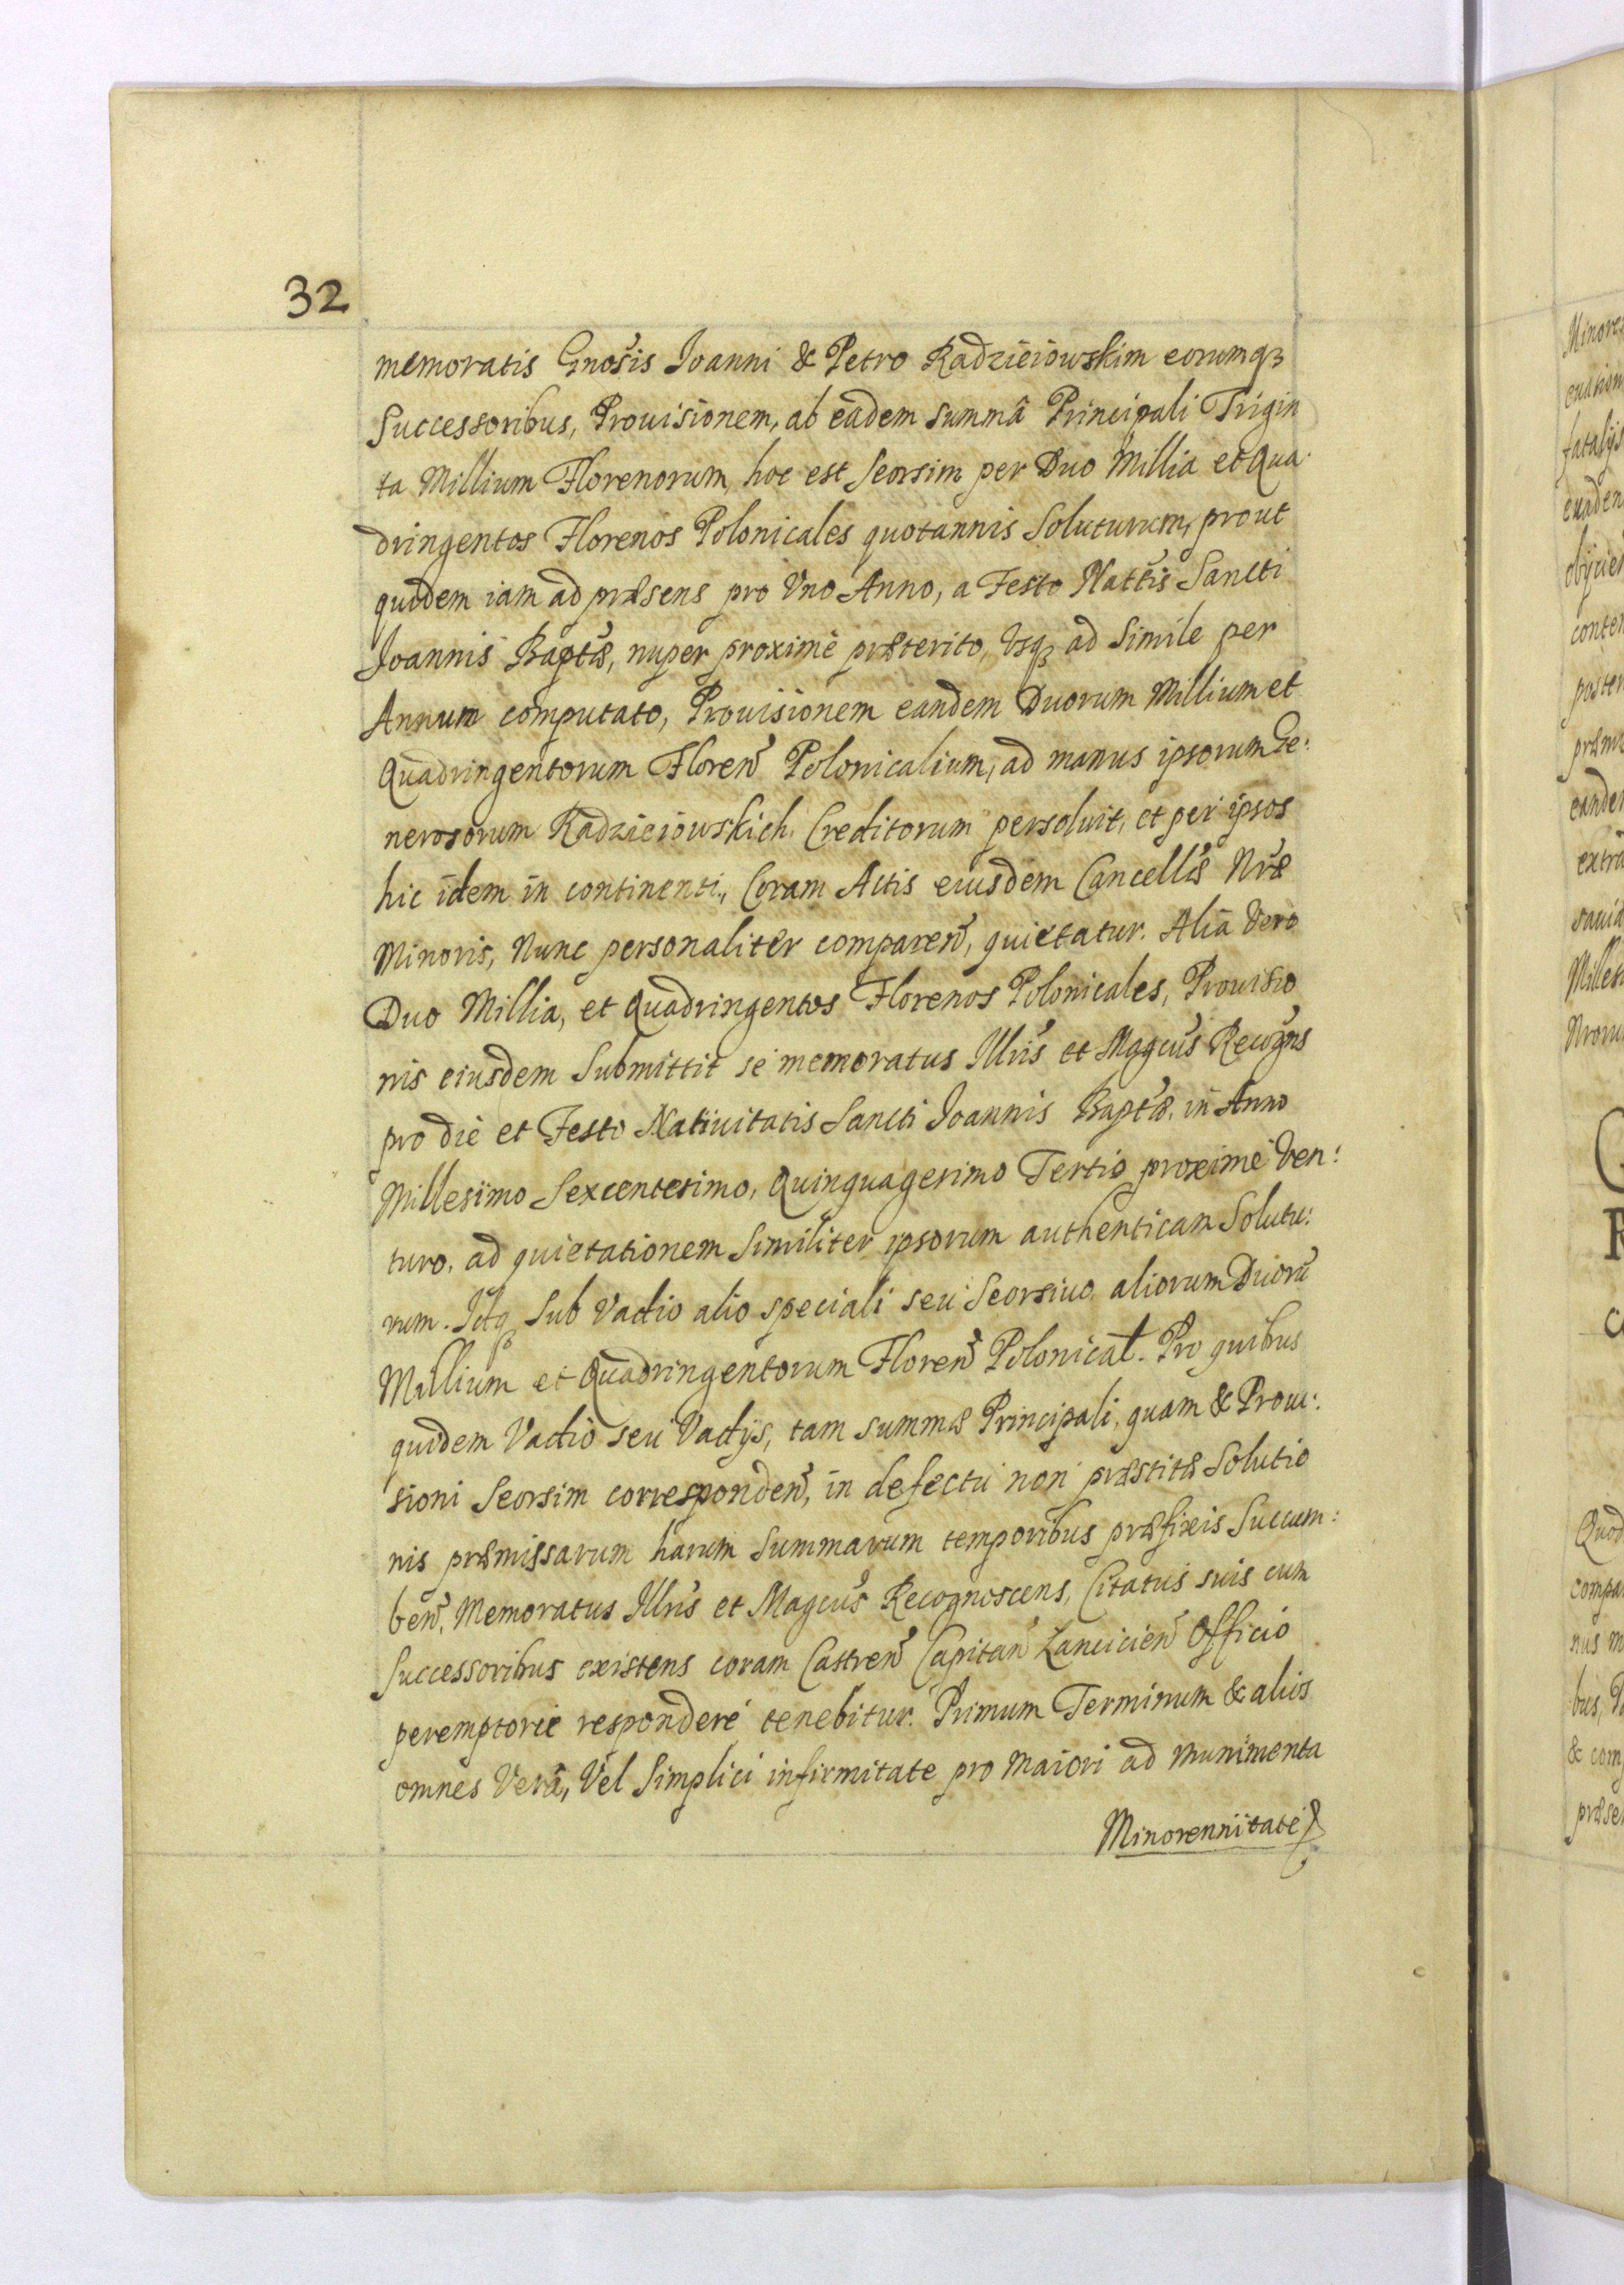 32
memoratis Gnosis Joanni & Petro Radzieiowskim eorumq3
Successoribus, Prouisionem, ab eâdem summâ Principali Trigin
ta Millium Florenorum, hoc est seorsim per Duo Millia et Qua:
dringentos Florenos Polonicales quotannis Soluturum, prout
quidem iam ad præsens pro Vno Anno, a Festo Nattis Sancti
Joannis Baptæ, nuper proximè præterito, Vsq3 ad Simile per
Annum computato, Prouisionem eandem Duorum Millium et
Quadringentorum Floren Polonicalium, ad manus ipsorum Ge:
nerosorum Radzieiowskich, Creditorum persoluit, et per ipsos
hic idem in continenti, Coram Actis eiusdem Cancellæ Nræ
Minoris, Nunc personaliter comparen, quietatur. Alia Vero
Duo Millia, et Quadringentos Florenos Polonicales, Prouisio
nis eiusdem Submittit se memoratus Illris et Magcus Recogns
pro die et Festo Natiuitatis Sancti Joannis Baptæ, in Anno
Millesimo Sexcentesimo, Quinquagesimo Tertio proximè Ven:
turo, ad quietationem Similiter ipsorum authenticam Solutu:
rum. Idq3 Sub Vadio alio speciali seu Seorsiuo aliorum Duorū
Millium et Quadringentorum Floren Polonical. Pro quibus
quidem Vadio seu Vadijs, tam summæ Principali, quam & Proui:
sioni Seorsim corresponden, in defectu non præstitæ Solutio
nis præmissarum harum Summarum temporibus præfixis Succum:
ben, Memoratus Illris et Magcus Recognoscens, Citatus suis cum
Successoribus existens coram Castren Capitan Lancicien Officio
peremptorie respondere tenebitur. Primum Terminum & alios
omnes Verâ, Vel Simplici infirmitate pro Maiori ad Munimenta
Minorennitate